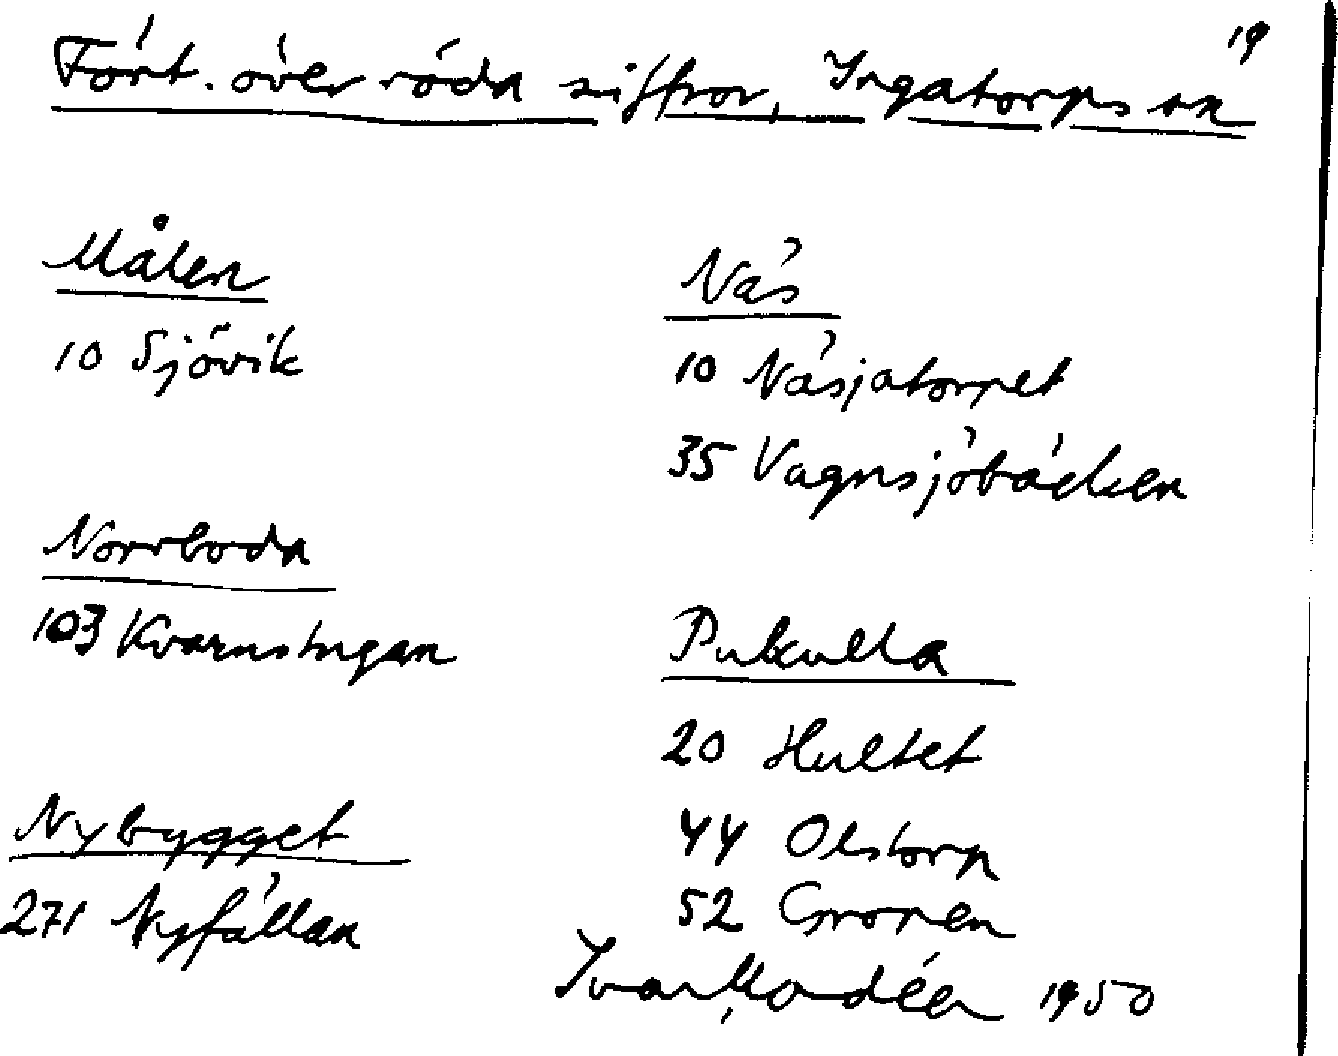 19
Fört. över röda siffror, Ingatorps sn
Målen
10 Sjövik
Norrboda
103 Kvarnstugan
Nybygget
271 Nyfällan
Näs
10 Näsjatorpet
35 Vagnsjöbäcken
Pukulla
20 Hultet
44 Olstorp
52 Gropen
Ivar Modéer 1950